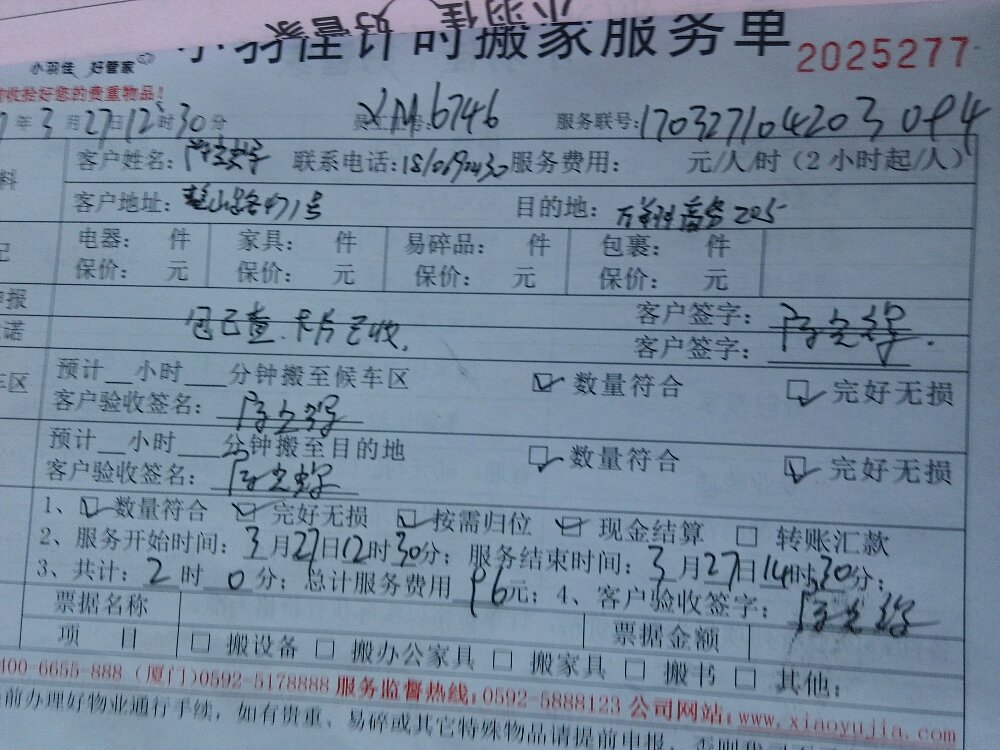 小羽佳 好管家
小羽佳计时搬家服务单 2025277
小羽佳 好管家
收验好您的贵重物品!
年3月27日12时30分 XM6746 服务联号:170327104203094
客户姓名: 联系电话: 服务费用: 元/人/时(2小时起/人)
客户地址: 号 目的地: 205
电器: 件 家具: 件 易碎品: 件 包裹: 件
保价: 元 保价: 元 保价: 元 保价: 元
申报 客户签字:
诺 包已查.卡片已收. 客户签字:
车区 预计__小时___分钟搬至候车区 数量符合 完好无损
客户验收签名:
预计__小时___分钟搬至目的地 数量符合 完好无损
客户验收签名:
1、 数量符合 完好无损 按需归位 现金结算 转账汇款
2、服务开始时间:3月27日12时30分;服务结束时间:3月27日14时30分;
3、共计:2时0分;总计服务费用96元;4、客户验收签字:
票据名称 票据金额
项 目 搬设备 搬办公家具 搬家具 搬书 其他:
400-6655-888 (厦门)0592-5178888 服务监督热线:0592-5888123 公司网站:www.xiaoyujia.com
前办理好物业通行手续,如有贵重、易碎或其它特殊物品请提前申报,否则